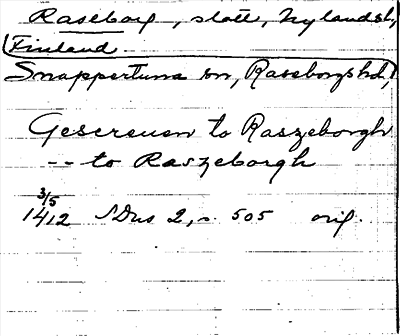 Raseborg, slott, Nylands l.,
Finland
Snappertuna sn, Raseborgs hd,
Gescreuen to Raszeborgh
-- to Raszeborgh
3/5
1412 SDns 2, s. 505 orig.